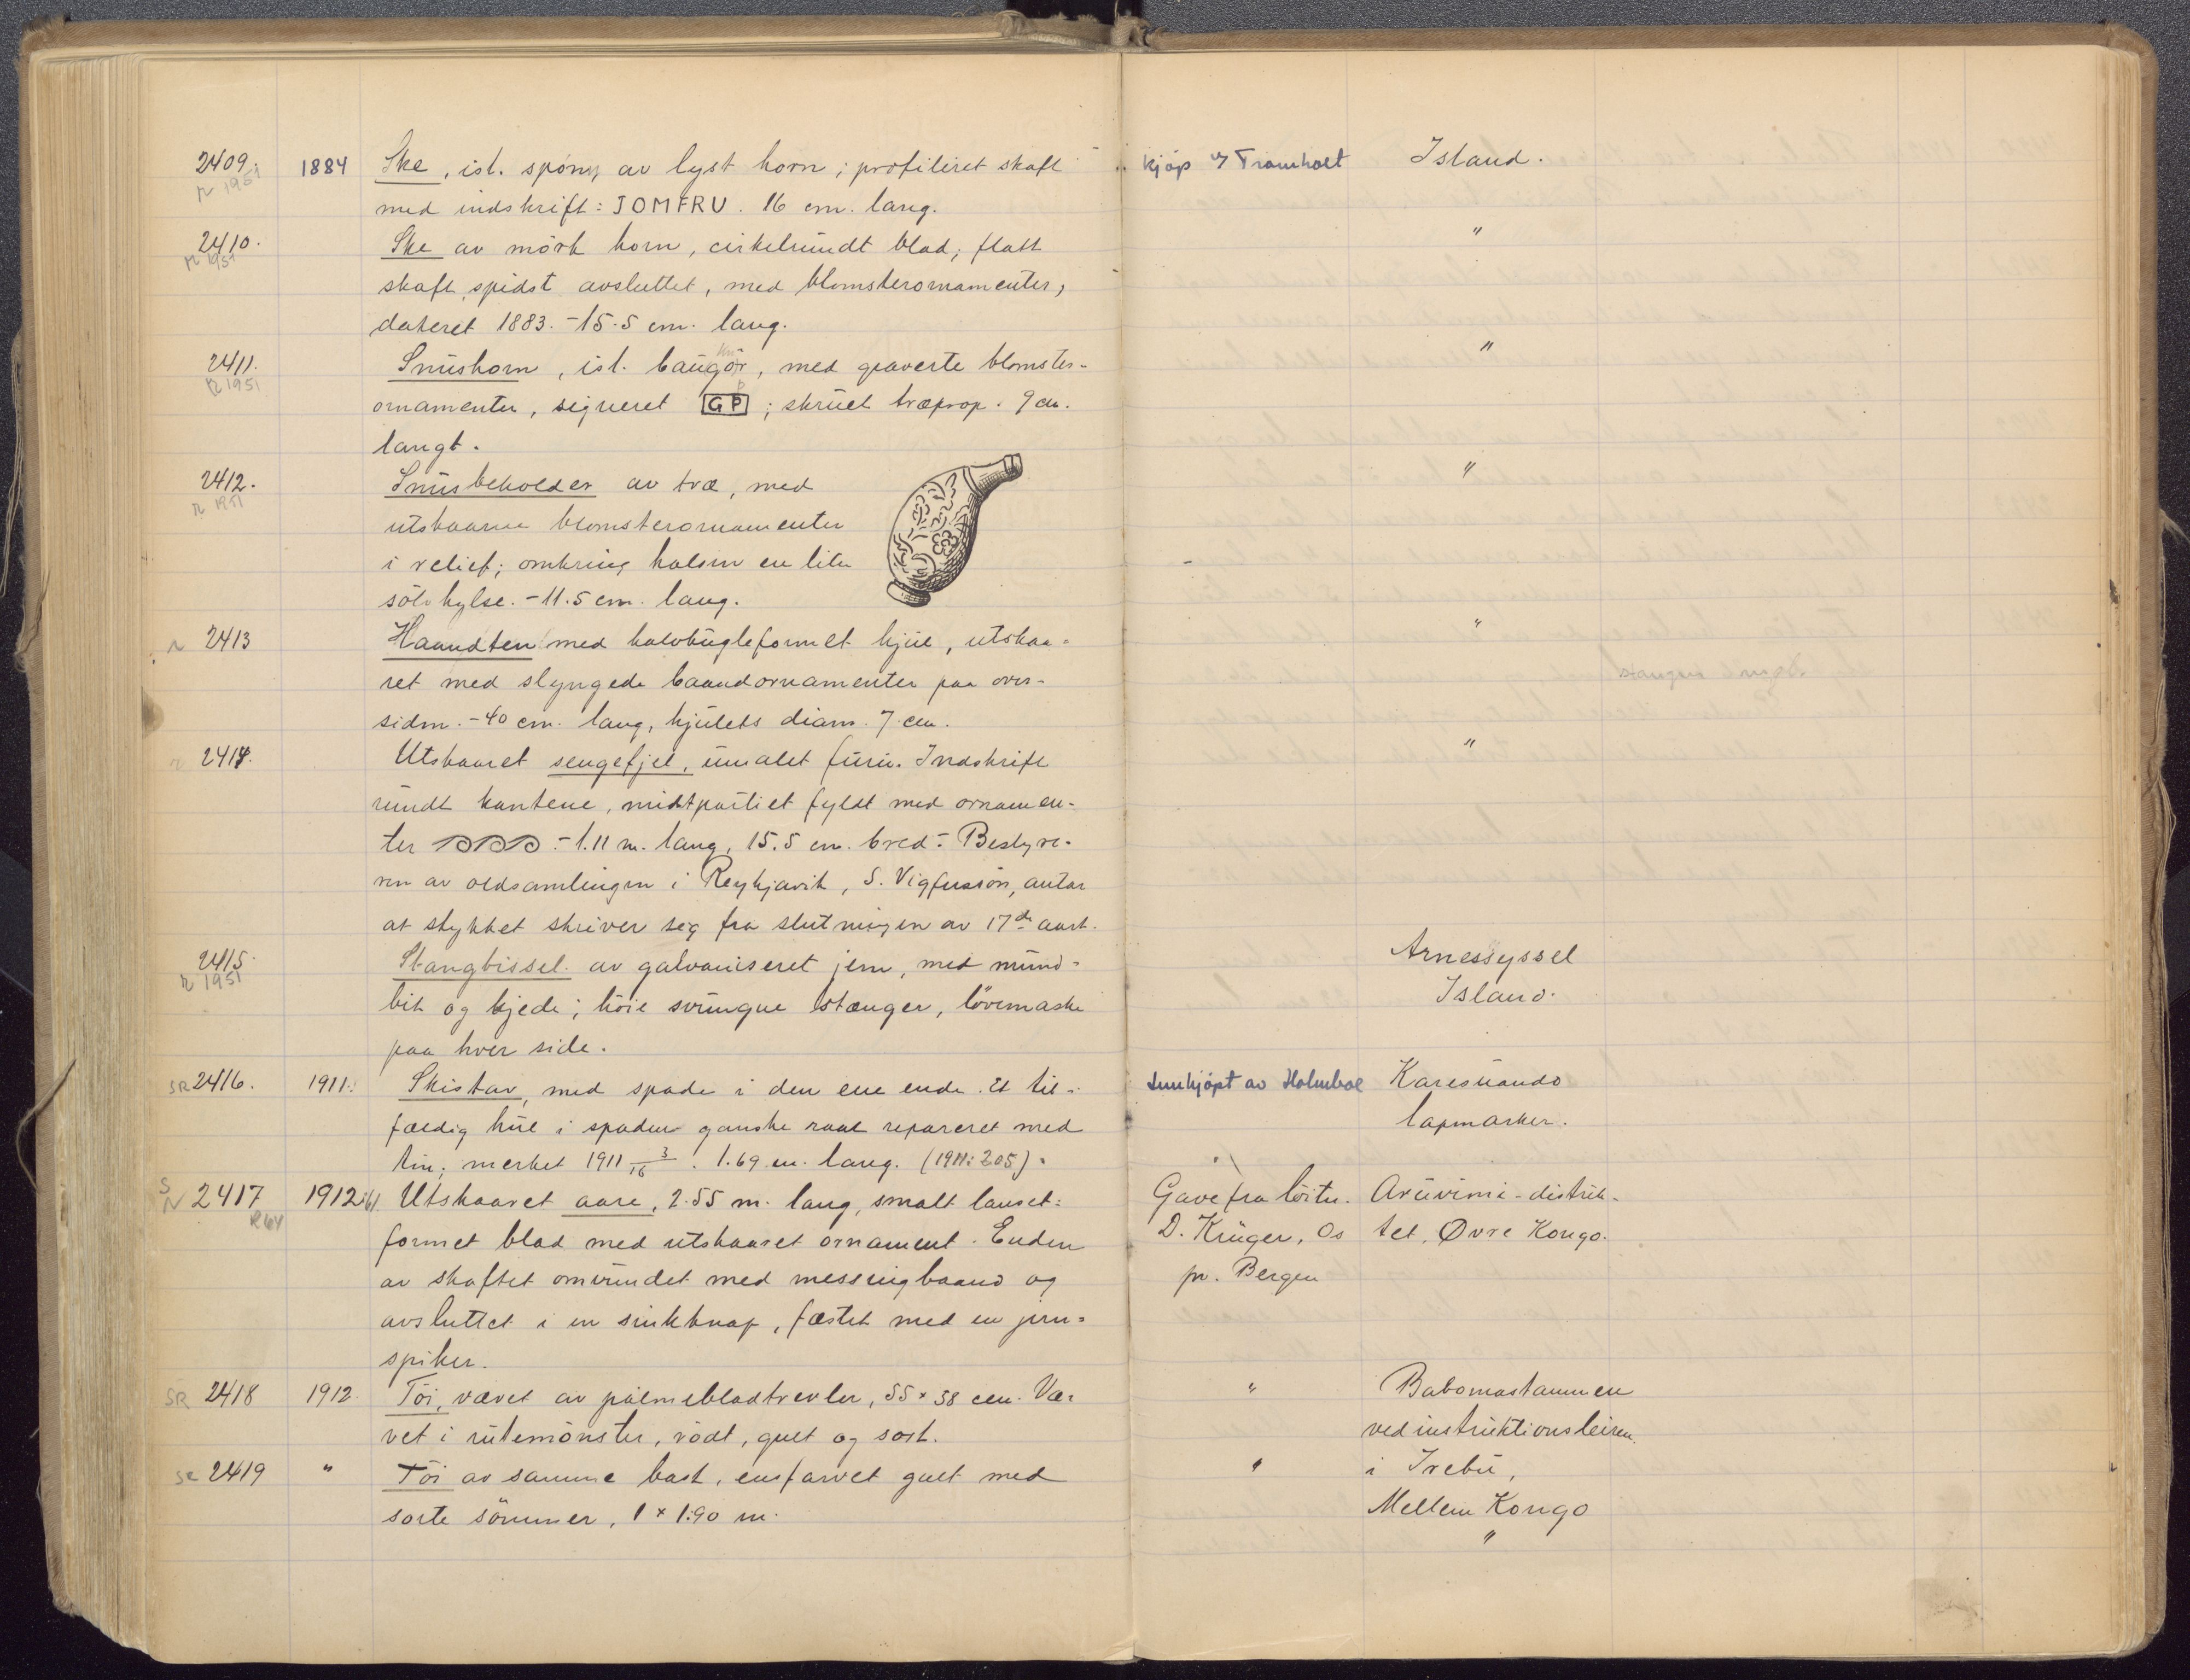 2409. 1884 Ske, isl. spónn av lyst horn; profileret skaft kjöp v/ Tramholt Island.
R 1951
med indskrift: JOMFRU. 16 cm. lang.
2410. Ske av mörk horn, cirkelrundt blad; flatt "
R 1951
skaft, spidst avsluttet, med blomsterornamenter,
dateret 1883. - 15.5 cm. lang.
2411. Snushorn, isl. baugór, med graverte blomster- "
R 1951
ornamenter, signeret GP; skruet træprop. 9 cm.
langt.
2412. Snusbeholder av træ, med "
R 1951
utskaarne blomsterornamenter
i relief; omkring halsen en liten
sölvhylse. - 11.5 cm. lang.
R 2413 Haandten med halvkugleformet hjul, utskaa- "
ret med slyngede baandornamenter paa over-
siden. - 40 cm. lang, hjulets diam. 7 cm.
r 2414. Utskaaret sengefjel, umalet furu. Indskrift "
rundt kantene, midtpartiet fyldt med ornamen-
ter - 1.11 m. lang, 15.5 cm. bred. - Bestyre-
ren av oldsamlingen i Reykjavik, S. Vigfusson, antar
at stykket skriver seg fra slutningen av 17de aarh.
2415. Stangbissel av galvaniseret jern, med mund- Arnessyssel
R 1951
bit og kjede; höie svungne stænger, lövemaske Island.
paa hver side.
SR 2416. 1911. Skistav, med spade i den ene ende. Et til- Innkjöpt av Holmboe Karesuando
fældig hul i spaden ganske raat repareret med lapmarker.
tin; merket 1911 3/16. 1.69 m. lang. (1911: 205).
S N 2417 1912:61. Utskaaret aare, 2.55 m. lang, smalt lanset- Gave fra löitn. Aruvimi-distrik-
R64
formet blad med utskaaret ornament. Enden D. Krüger, Os tet, Øvre Kongo.
av skaftet omvundet med messingbaand og pr. Bergen
avsluttet i en sinkknap, fæstet med en jern-
spiker.
SR 2418 1912. Töi, vævet av palmebladtrevler, 55 x 58 cm. Væ- " Babomastammen
vet i rutemönster, rödt, gult og sort. ved instruktionsleiren
SR 2419 " Töi av samme bast, ensfarvet gult med " i Irebu,
sorte sömmer, 1 x 1.90 m. Mellem Kongo
"